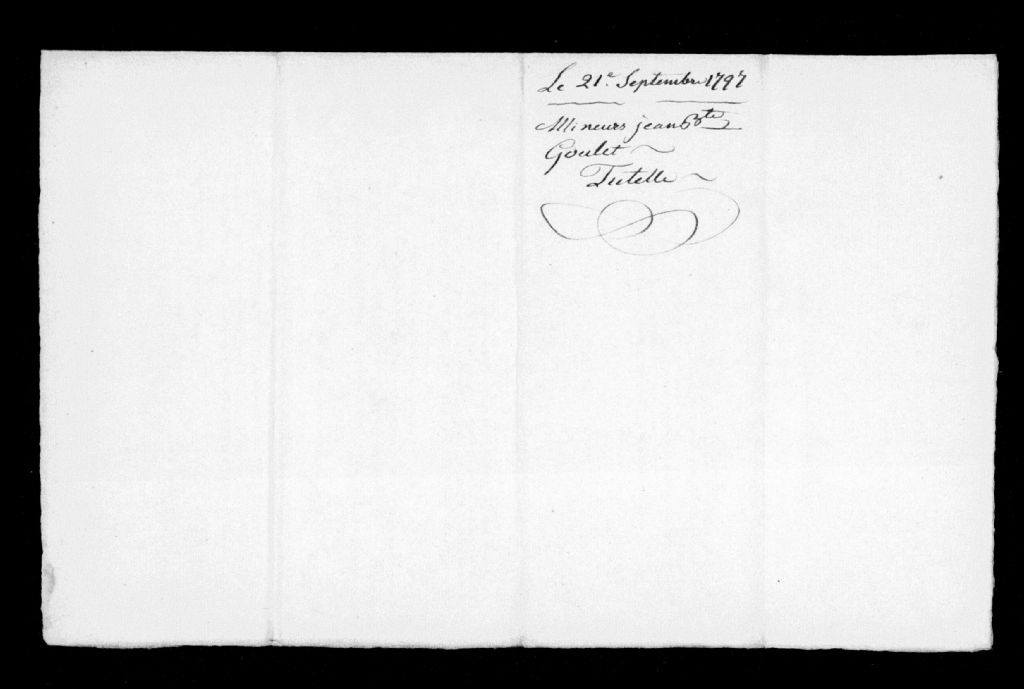 Le 21e Septembre 1797
Mineurs jean Bte
Goulet
Tutelle